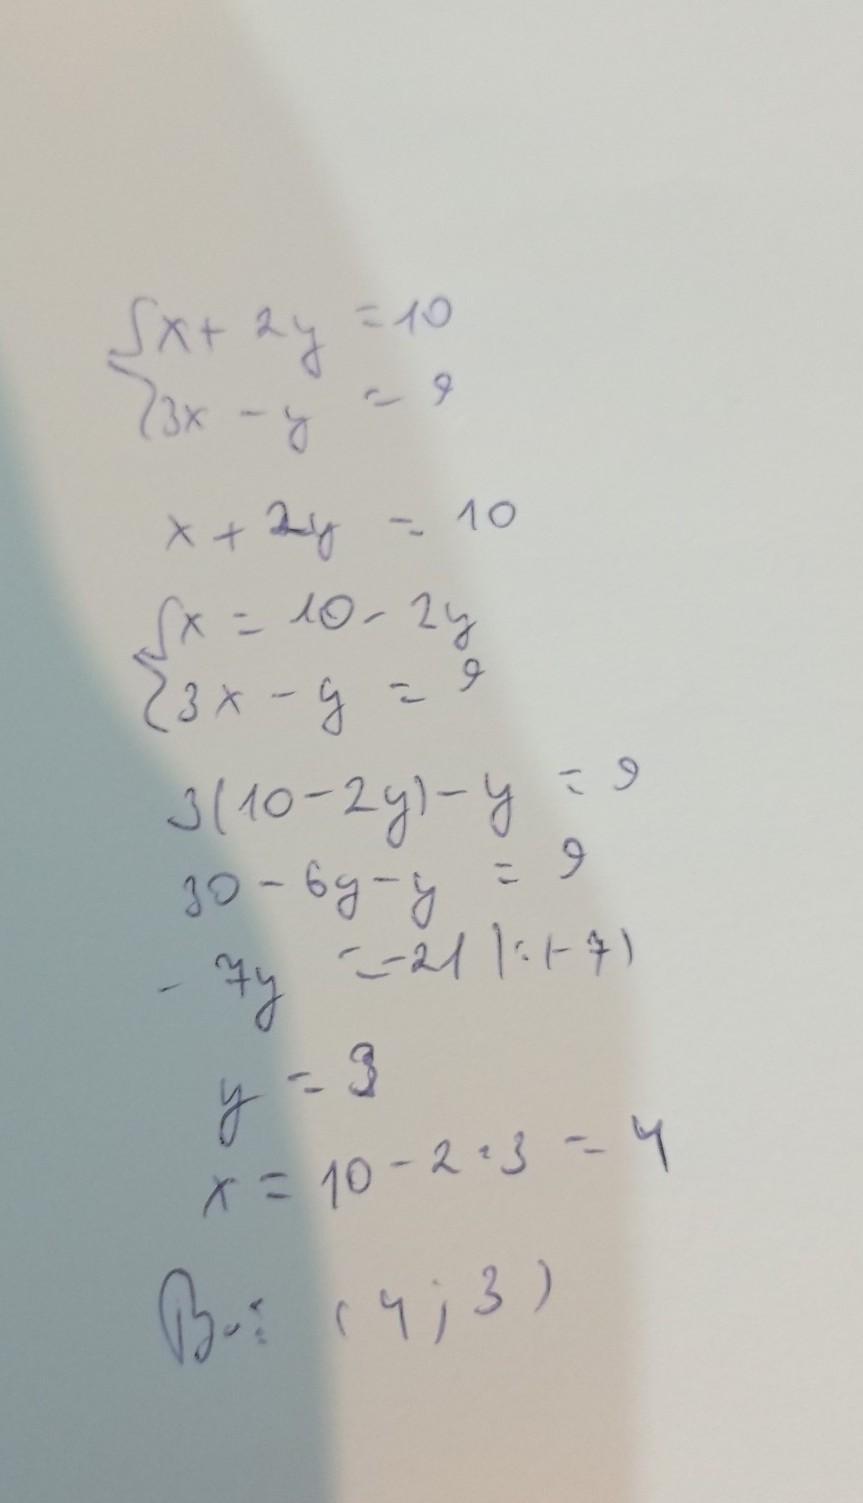 {x + 2y = 10
{3x - y = 9
x + 2y = 10
{x = 10 - 2y
{3x - y = 9
3(10 - 2y) - y = 9
30 - 6y - y = 9
- 7y = -21 |:(-7)
y = 3
x = 10 - 2·3 = 4
(4; 3)